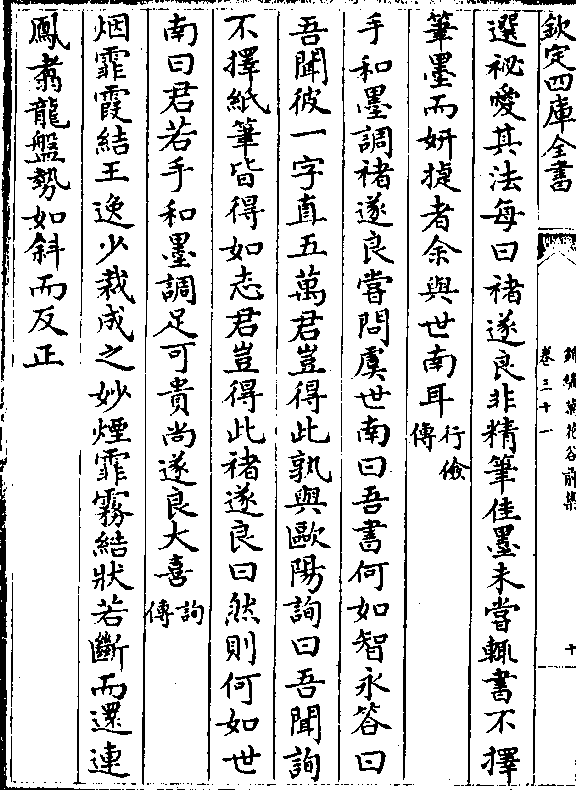 欽定四庫全書
錦繡萬花谷前集
卷三十一
十
選祕愛其法每曰禇遂良非精筆佳墨未嘗輒書不擇
筆墨而妍捷者余與世南耳行儉傳
手和墨調禇遂良嘗問虞世南曰吾書何如智永答曰
吾聞彼一字直五萬君豈得此孰與歐陽詢曰吾聞詢
不擇紙筆皆得如志君豈得此禇遂良曰然則何如世
南曰君若手和墨調足可貴尚遂良大喜詢傳
烟霏霞結王逸少裁成之妙煙霏霧結狀若斷而還連
鳳翥龍盤勢如斜而反正